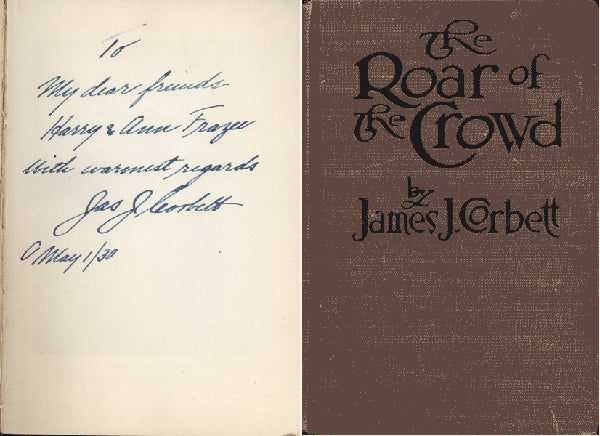 To
My dear friends
Harry & Ann Frazee
With warmest regards
Jas J. Corbett
May 1/30
The
Roar of
the Crowd
by
James J. Corbett